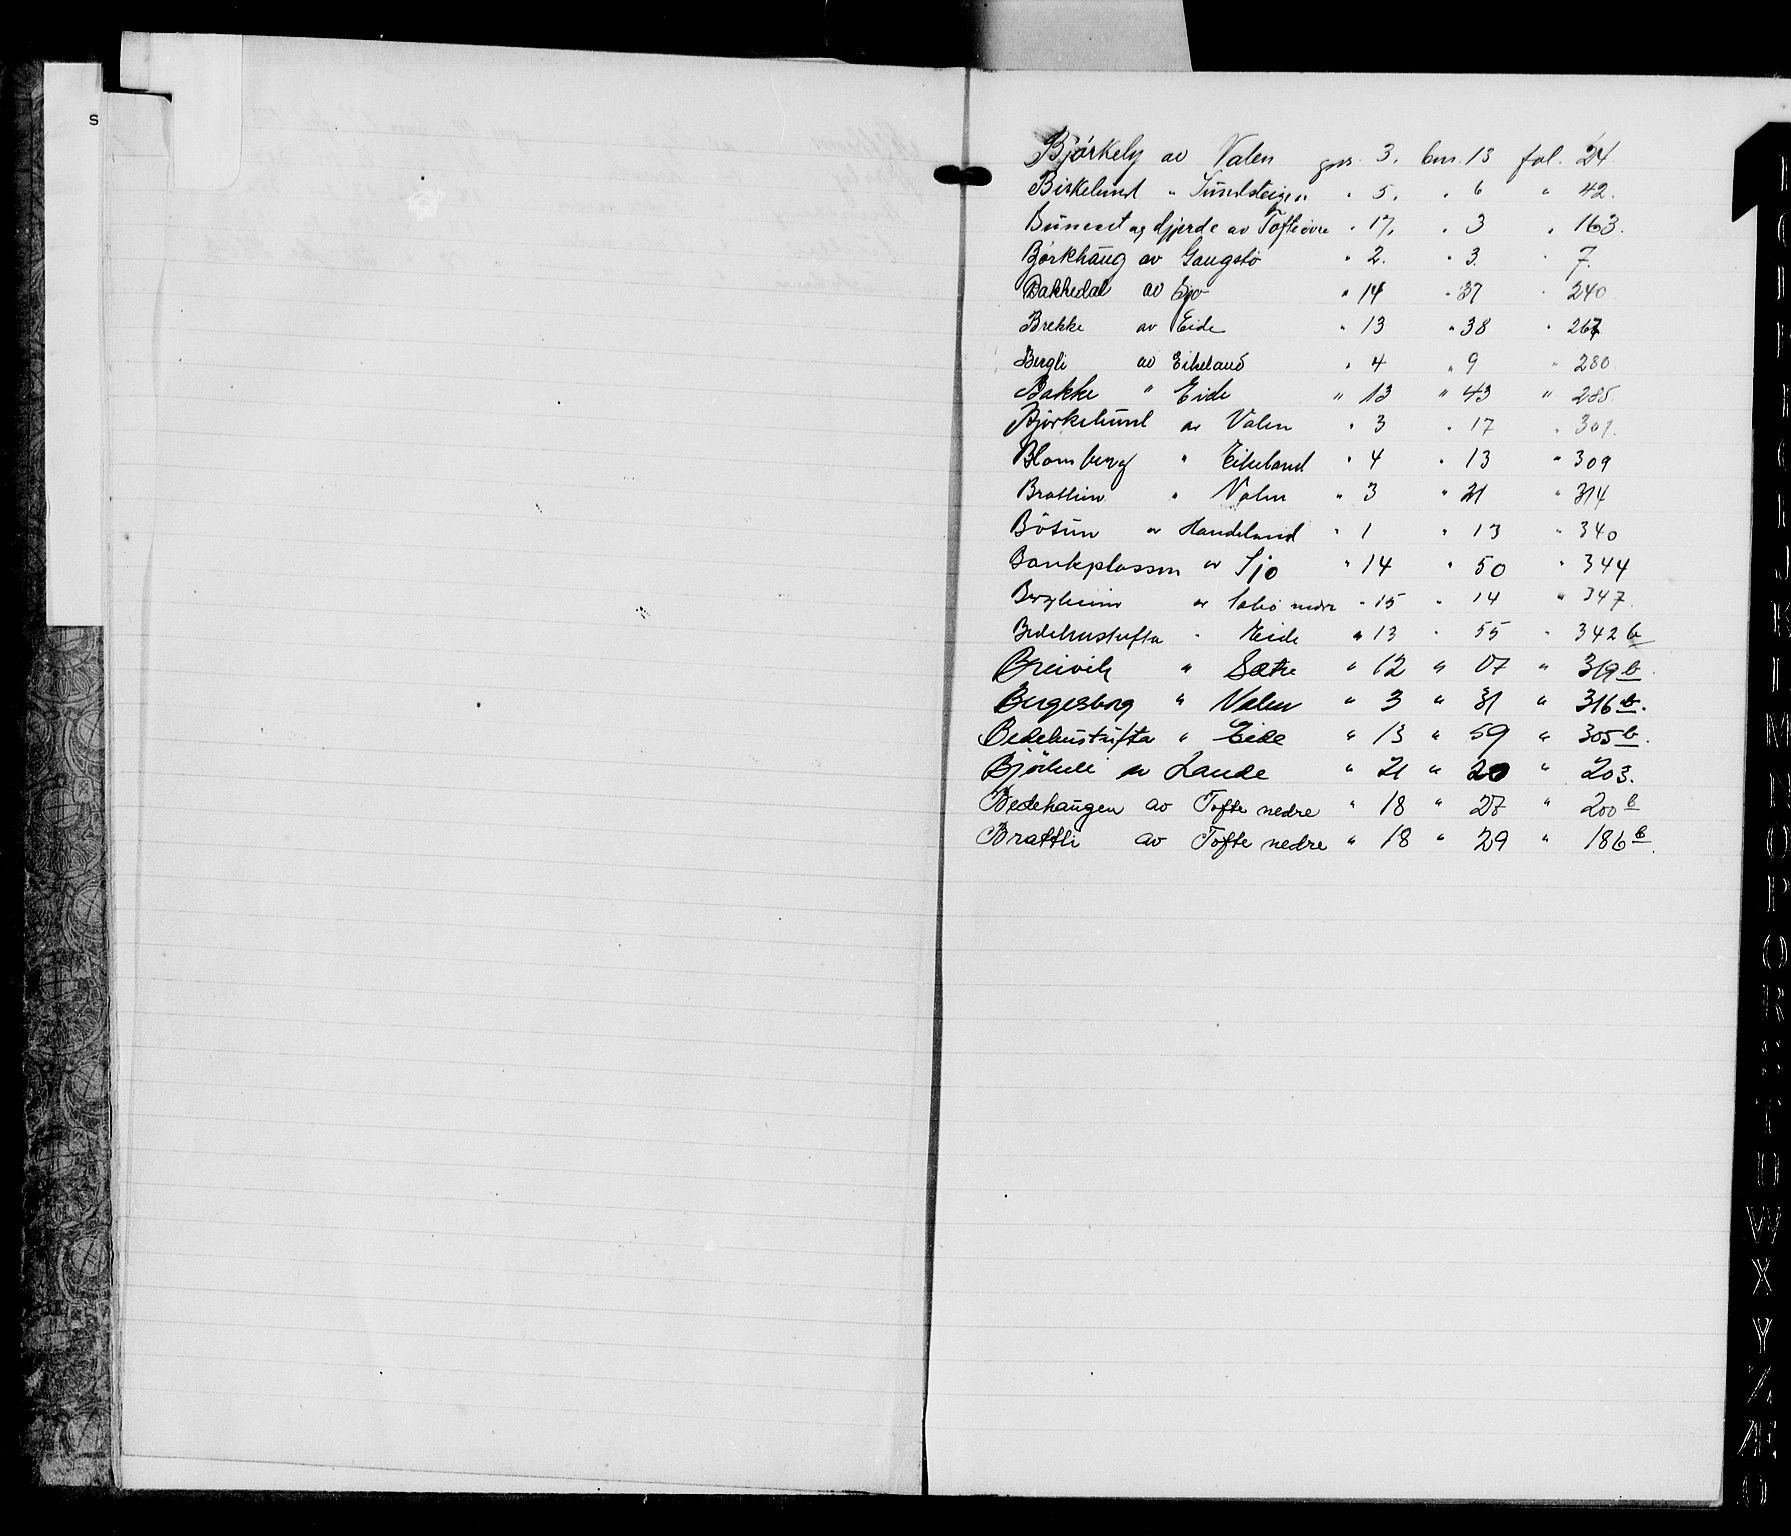 Björkely av Valen gnr. 3. bnr. 13 fol. 24.
Birkelund " Sundsteigen " 5. " 6 " 42.
Buneset og djerde av Tofte övre " 17. " 3 " 163.
Björkhaug av Gaugstö " 2. " 3. " 7.
Bakkedal av Sjo " 14 " 37 " 240
Brekke av Eide " 13 " 38 " 267
Bergli av Eikeland " 4 " 9 " 280
Bakke " Eide " 13 " 43 " 285.
Björkelund av Valen " 3 " 17 " 301.
Blomberg " Eikeland " 4 " 13 " 309
Brattun " Valen " 3 " 21 " 314
Bötun av Handeland " 1 " 13 " 340
Bankplassen av Sjo " 14 " 50 " 344
Bergheim av nedre " 15 " 14 " 347.
Bedehustufta " Eide " 13 " 55 " 342 b
Breivik " Sætre " 12 " 17 " 319 b.
Bergesborg " Valen " 3 " 31 " 316 b.
Bedehustufta " Eide " 13 " 59 " 305 b.
Björkeli av Lande " 21 " 20 " 203.
Bedehaugen av Tofte nedre " 18 " 27 " 200 b
Brattli av Tofte nedre " 18 " 29 " 186 b.
S
W
X
Y
Z
Æ
Ø